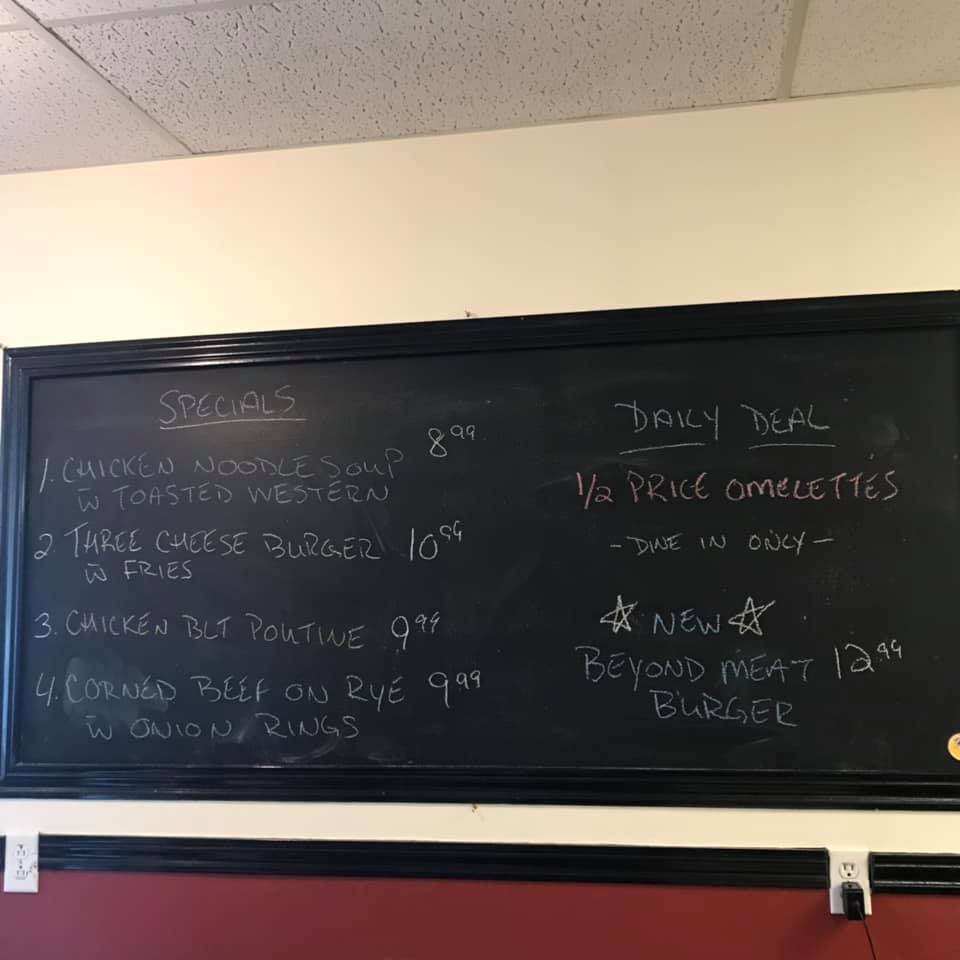 SPECIALS
1. CHICKEN NOODLE SOUP 8.99
w̄ TOASTED WESTERN
2. THREE CHEESE BURGER 10.99
w̄ FRIES
3. CHICKEN BLT POUTINE 9.99
4. CORNED BEEF ON RYE 9.99
w̄ ONION RINGS
DAILY DEAL
1/2 PRICE OMELETTES
- DINE IN ONLY -
☆ NEW ☆
BEYOND MEAT 12.99
BURGER